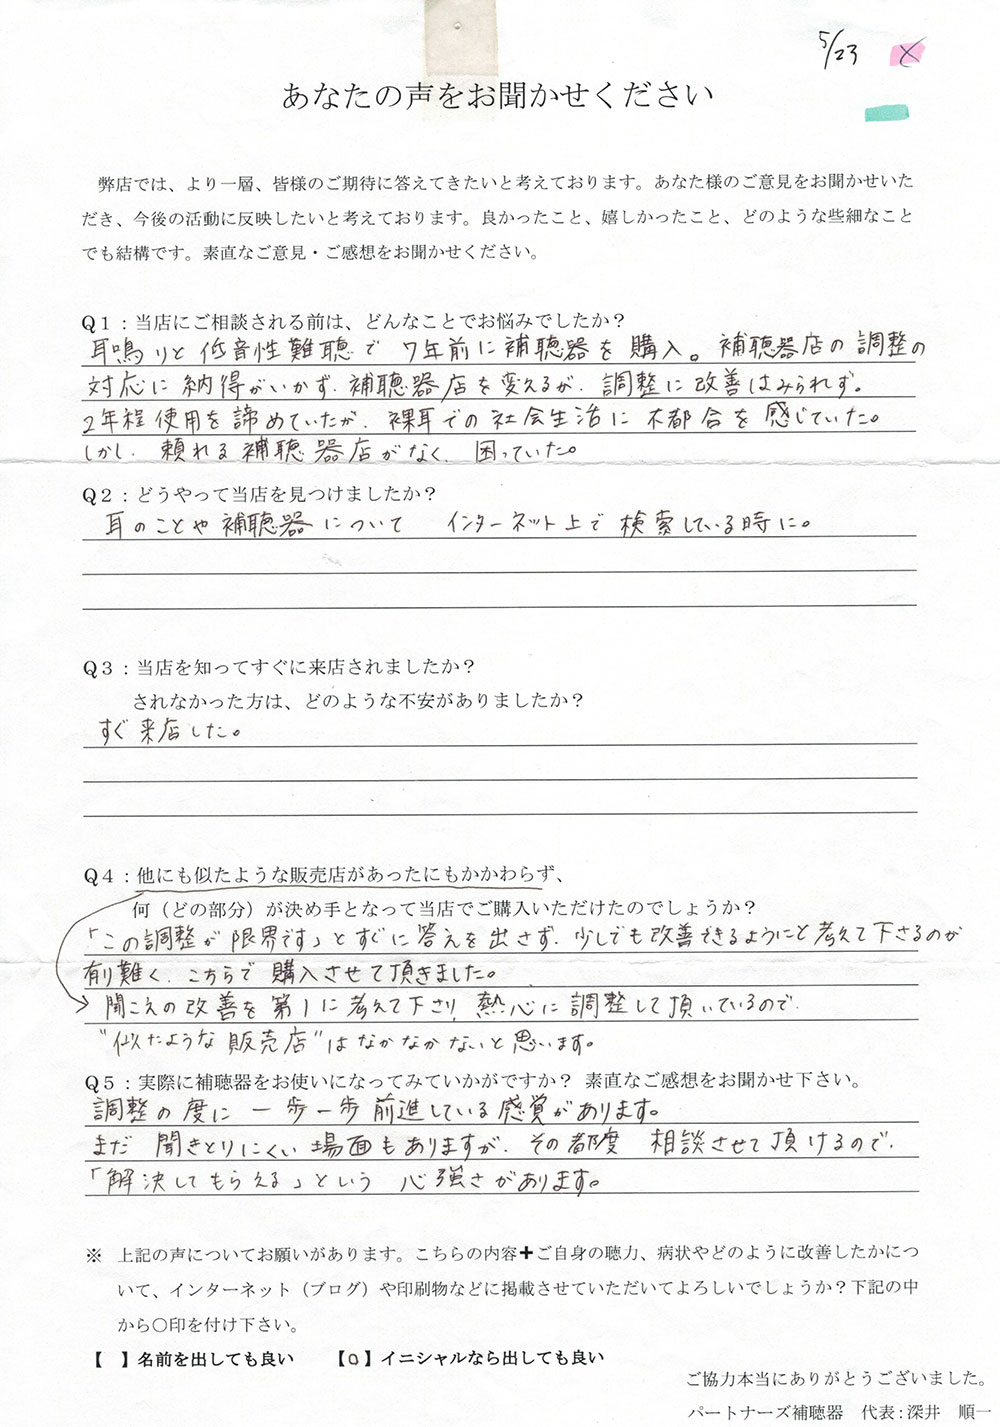 5/23
あなたの声をお聞かせください
弊店では、より一層、皆様のご期待に答えてきたいと考えております。あなた様のご意見をお聞かせいた
だき、今後の活動に反映したいと考えております。良かったこと、嬉しかったこと、どのような些細なこと
でも結構です。素直なご意見・ご感想をお聞かせください。
Q1：当店にご相談される前は、どんなことでお悩みでしたか？
耳鳴りと低音性難聴で 7年前に補聴器を購入。補聴器店の調整の
対応に納得がいかず、補聴器店を変えるが、調整に改善はみられず。
2年程使用を諦めていたが、裸耳での社会生活に不都合を感じていた。
しかし、頼れる補聴器店がなく、困っていた。
Q2：どうやって当店を見つけましたか？
耳のことや補聴器について インターネット上で検索している時に。
Q3：当店を知ってすぐに来店されましたか？
されなかった方は、どのような不安がありましたか？
すぐ来店した。
Q4：他にも似たような販売店があったにもかかわらず、
何（どの部分）が決め手となって当店でご購入いただけたのでしょうか？
「この調整が限界です」とすぐに答えを出さず、少しでも改善できるようにと考えて下さるのが
有り難く、こちらで購入させて頂きました。
聞こえの改善を第1に考えて下さり、熱心に調整して頂いているので、
"似たような販売店"はなかなかないと思います。
Q5：実際に補聴器をお使いになってみていかがですか？ 素直なご感想をお聞かせ下さい。
調整の度に一歩一歩前進している感覚があります。
まだ 聞きとりにくい場面もありますが、その都度 相談させて頂けるので、
「解決してもらえる」という 心強さがあります。
※ 上記の声についてお願いがあります。こちらの内容＋ご自身の聴力、病状やどのように改善したかにつ
いて、インターネット（ブログ）や印刷物などに掲載させていただいてよろしいでしょうか？下記の中
から〇印を付け下さい。
【 】名前を出しても良い 【〇】イニシャルなら出しても良い
ご協力本当にありがとうございました。
パートナーズ補聴器 代表：深井 順一